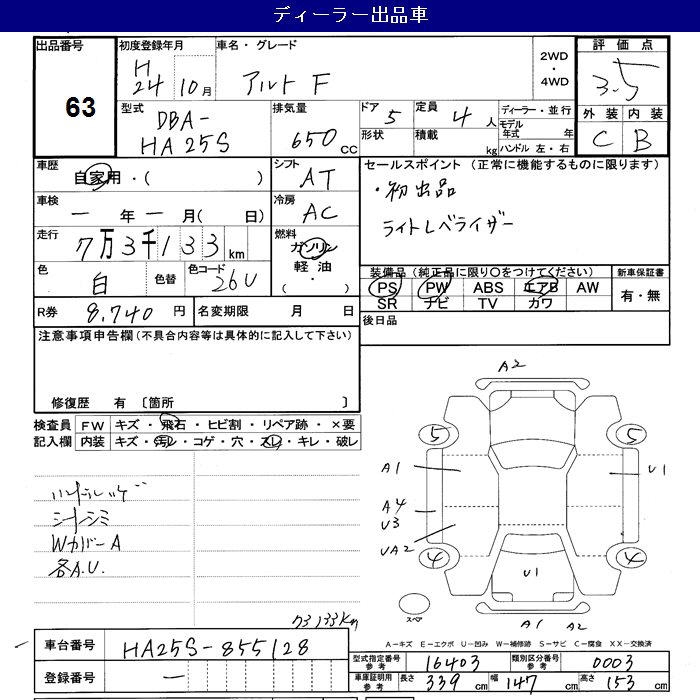 ディーラー出品車
出品番号 63
初度登録年月 H24 10月
車名・グレード アルト F
2WD・4WD
評価点 3.5
外装 内装
C B
型式 DBA-HA25S
排気量 650 CC
ドア 5
定員 4人
形状
積載 kg
ディーラー・並行
モデル年式 年
ハンドル 左・右
車歴 自家用・( )
シフト AT
車検 ー年ー月( 日)
冷房 AC
走行 7万3千133 km
燃料 ガソリン 軽油 ( ・ )
色 白 色替
色コード 26U
R券 8,740 円
名変期限 月 日
セールスポイント (正常に機能するものに限ります)
・初出品
ライトレベライザー
装備品(純正品に限り〇をつけてください)
PS PW ABS エアB AW
SR ナビ TV カワ
新車保証書
有・無
後日品
注意事項申告欄(不具合内容等は具体的に記入して下さい)
修復歴 有 〔箇所 〕
検査員 FW キズ・飛石・ヒビ割・リペア跡・×要
記入欄 内装 キズ・汚レ・コゲ・穴・スレ・キレ・破レ
シートシミ
WカバーA
各A.U.
73133Km
A2
5 5
A1 U1
A4
U3
UA2
4 4
U1
スペア
A1 A2
A-キズ E-エクボ U-凹み W-補修跡 S-サビ C-腐食 XX-交換済
車台番号 HA25S-855128
登録番号 ー
型式指定番号 参考 16403
類別区分番号 参考 0003
車庫証明用 参考 長さ 339 cm 幅 147 cm 高さ 153 cm